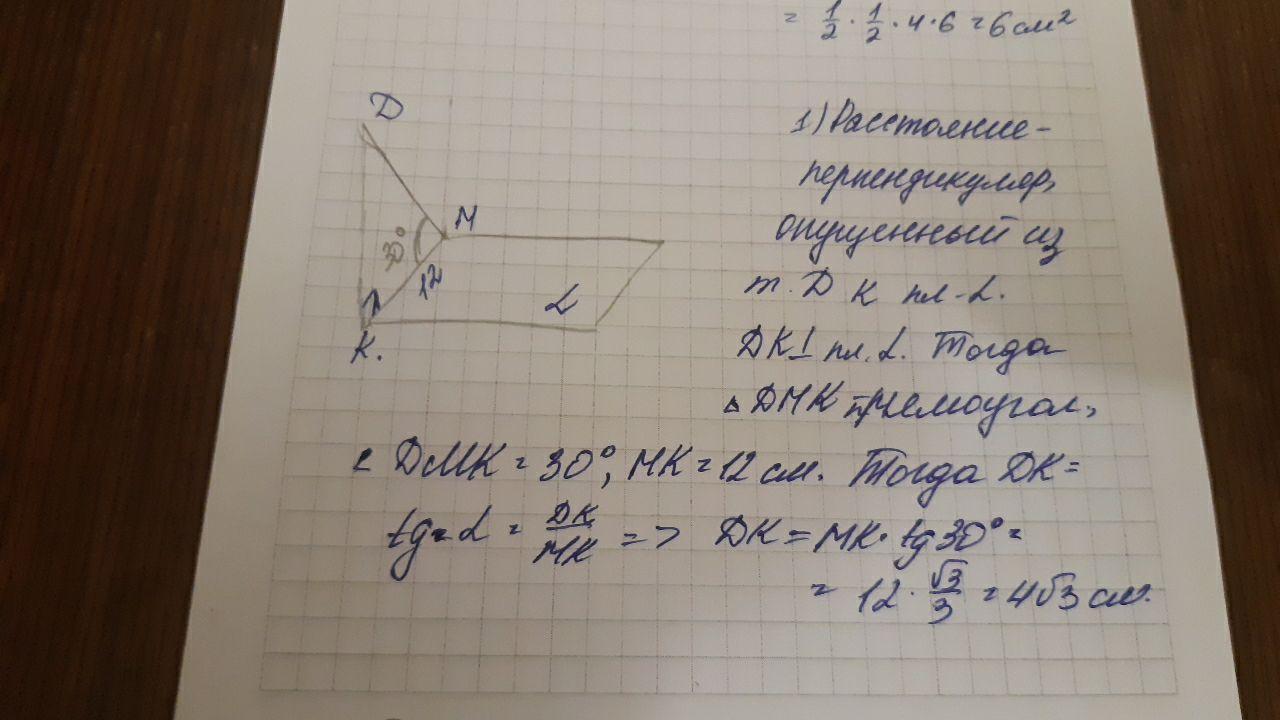 = 1/2 · 1/2 · 4 · 6 = 6 см²
Д
M
30°
12
K.
L
1) Расстояние -
перпендикуляр,
опущенный из
т. D к пл. L.
DK ⊥ пл. L. Тогда
△ DMK прямоугол,
∠ DMK = 30°, MK = 12 см. Тогда DK =
tg L = DK/MK => DK = MK · tg 30° =
= 12 · √3/3 = 4√3 см.